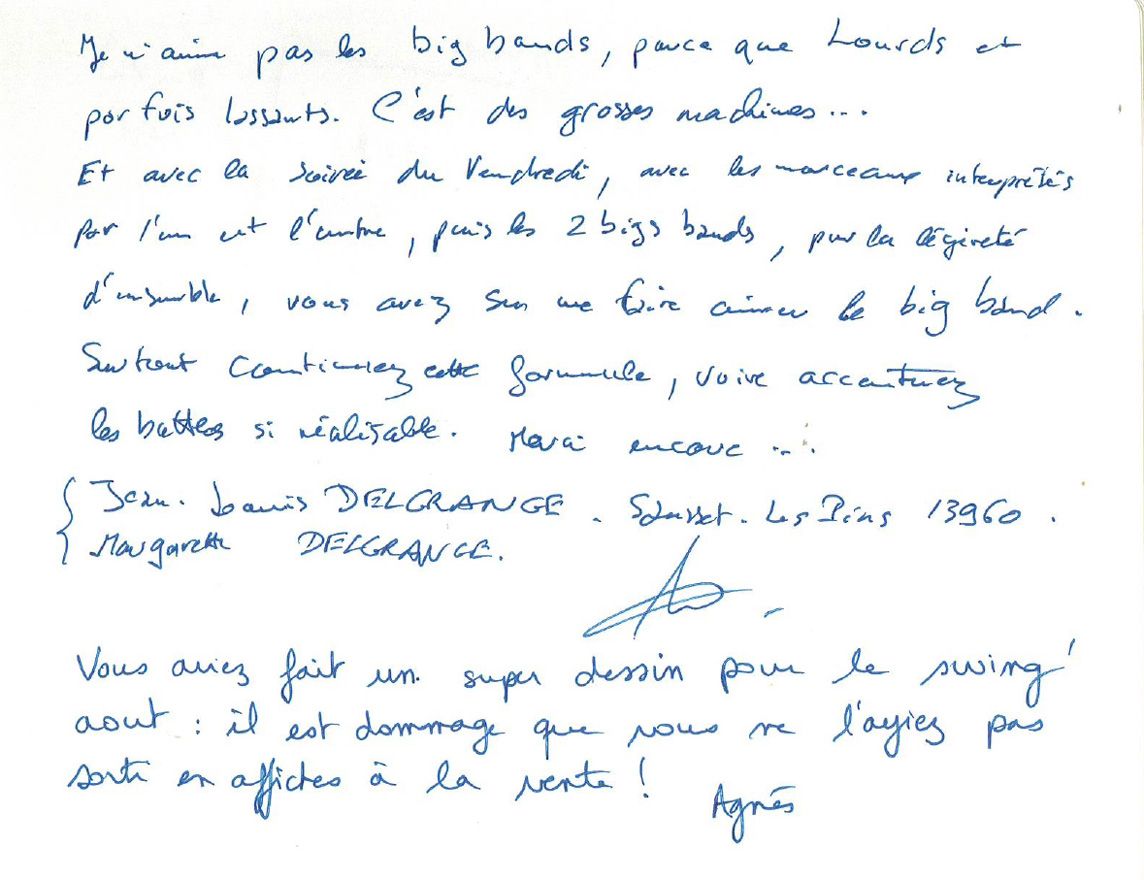 Je n'aime pas les big bands, parce que Lourds et
parfois lassants. C'est des grosses machines...
Et avec la soirée du Vendredi, avec les morceaux interprétés
par l'un et l'autre, puis les 2 bigs bands, par la légèreté
d'ensemble, vous avez su me faire aimer le big band.
Surtout continuez cette formule, voire accentuez
les battles si réalisable. Merci encore ...
Jean. Louis DELGRANGE. Sausset. Les Pins 13960.
Margarette DELGRANGE.
Vous aviez fait un super dessin pour le swing'
aout : il est dommage que vous ne l'ayiez pas
sorti en affiches à la vente !
Agnès